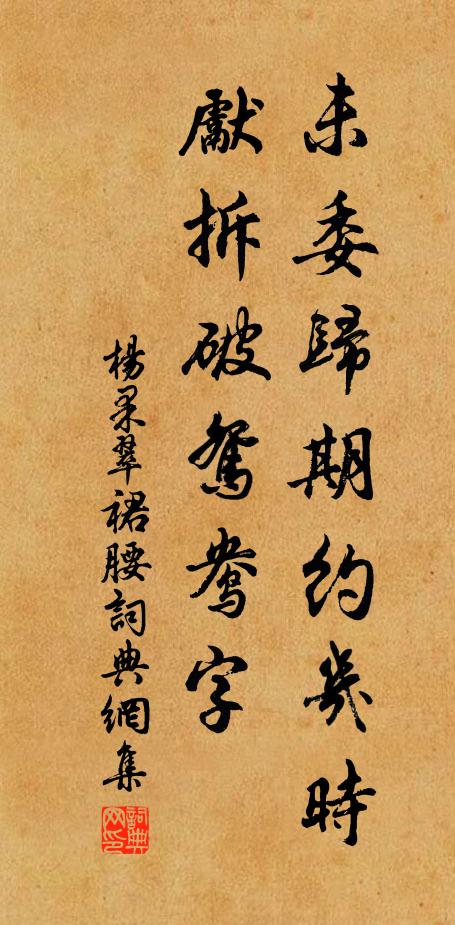 未委歸期約幾時
獻拆破鴛鴦字
楊果翠裙腰詞典網集
詞典网印